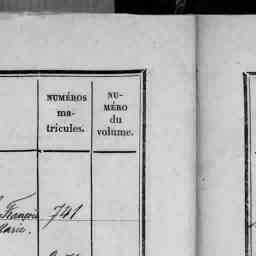 NUMÉROS
ma-
tricules.
NU-
MÉRO
du
volume.
François 741
Marie.